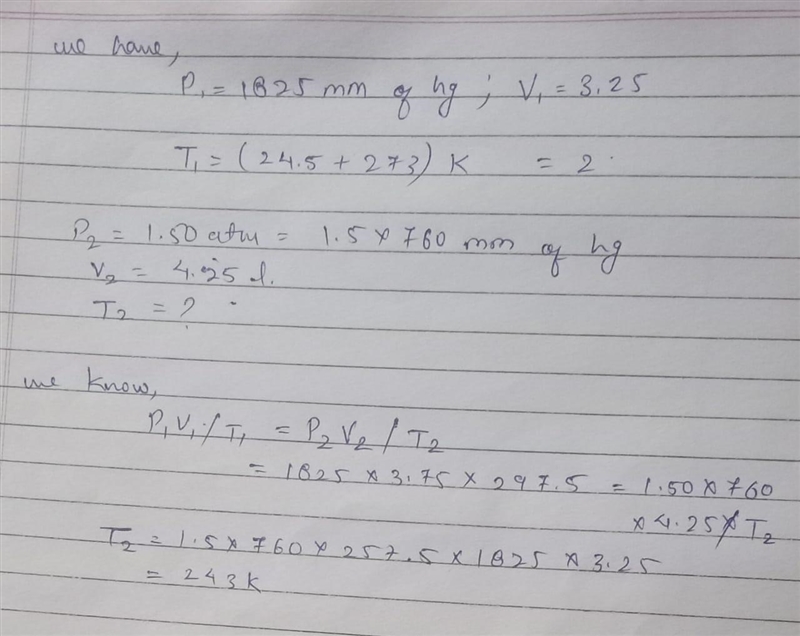 we have,
P₁ = 1825 mm of hg ; V₁ = 3.25
T₁ = (24.5 + 273) K = 2
P₂ = 1.50 atm = 1.5 × 760 mm of hg
V₂ = 4.25 l.
T₂ = ?
we know,
P₁V₁/T₁ = P₂V₂/T₂
= 1825 × 3.75 × 297.5 = 1.50 × 760
× 4.25 × T₂
T₂ = 1.5 × 760 × 257.5 × 1825 × 3.25
= 243K